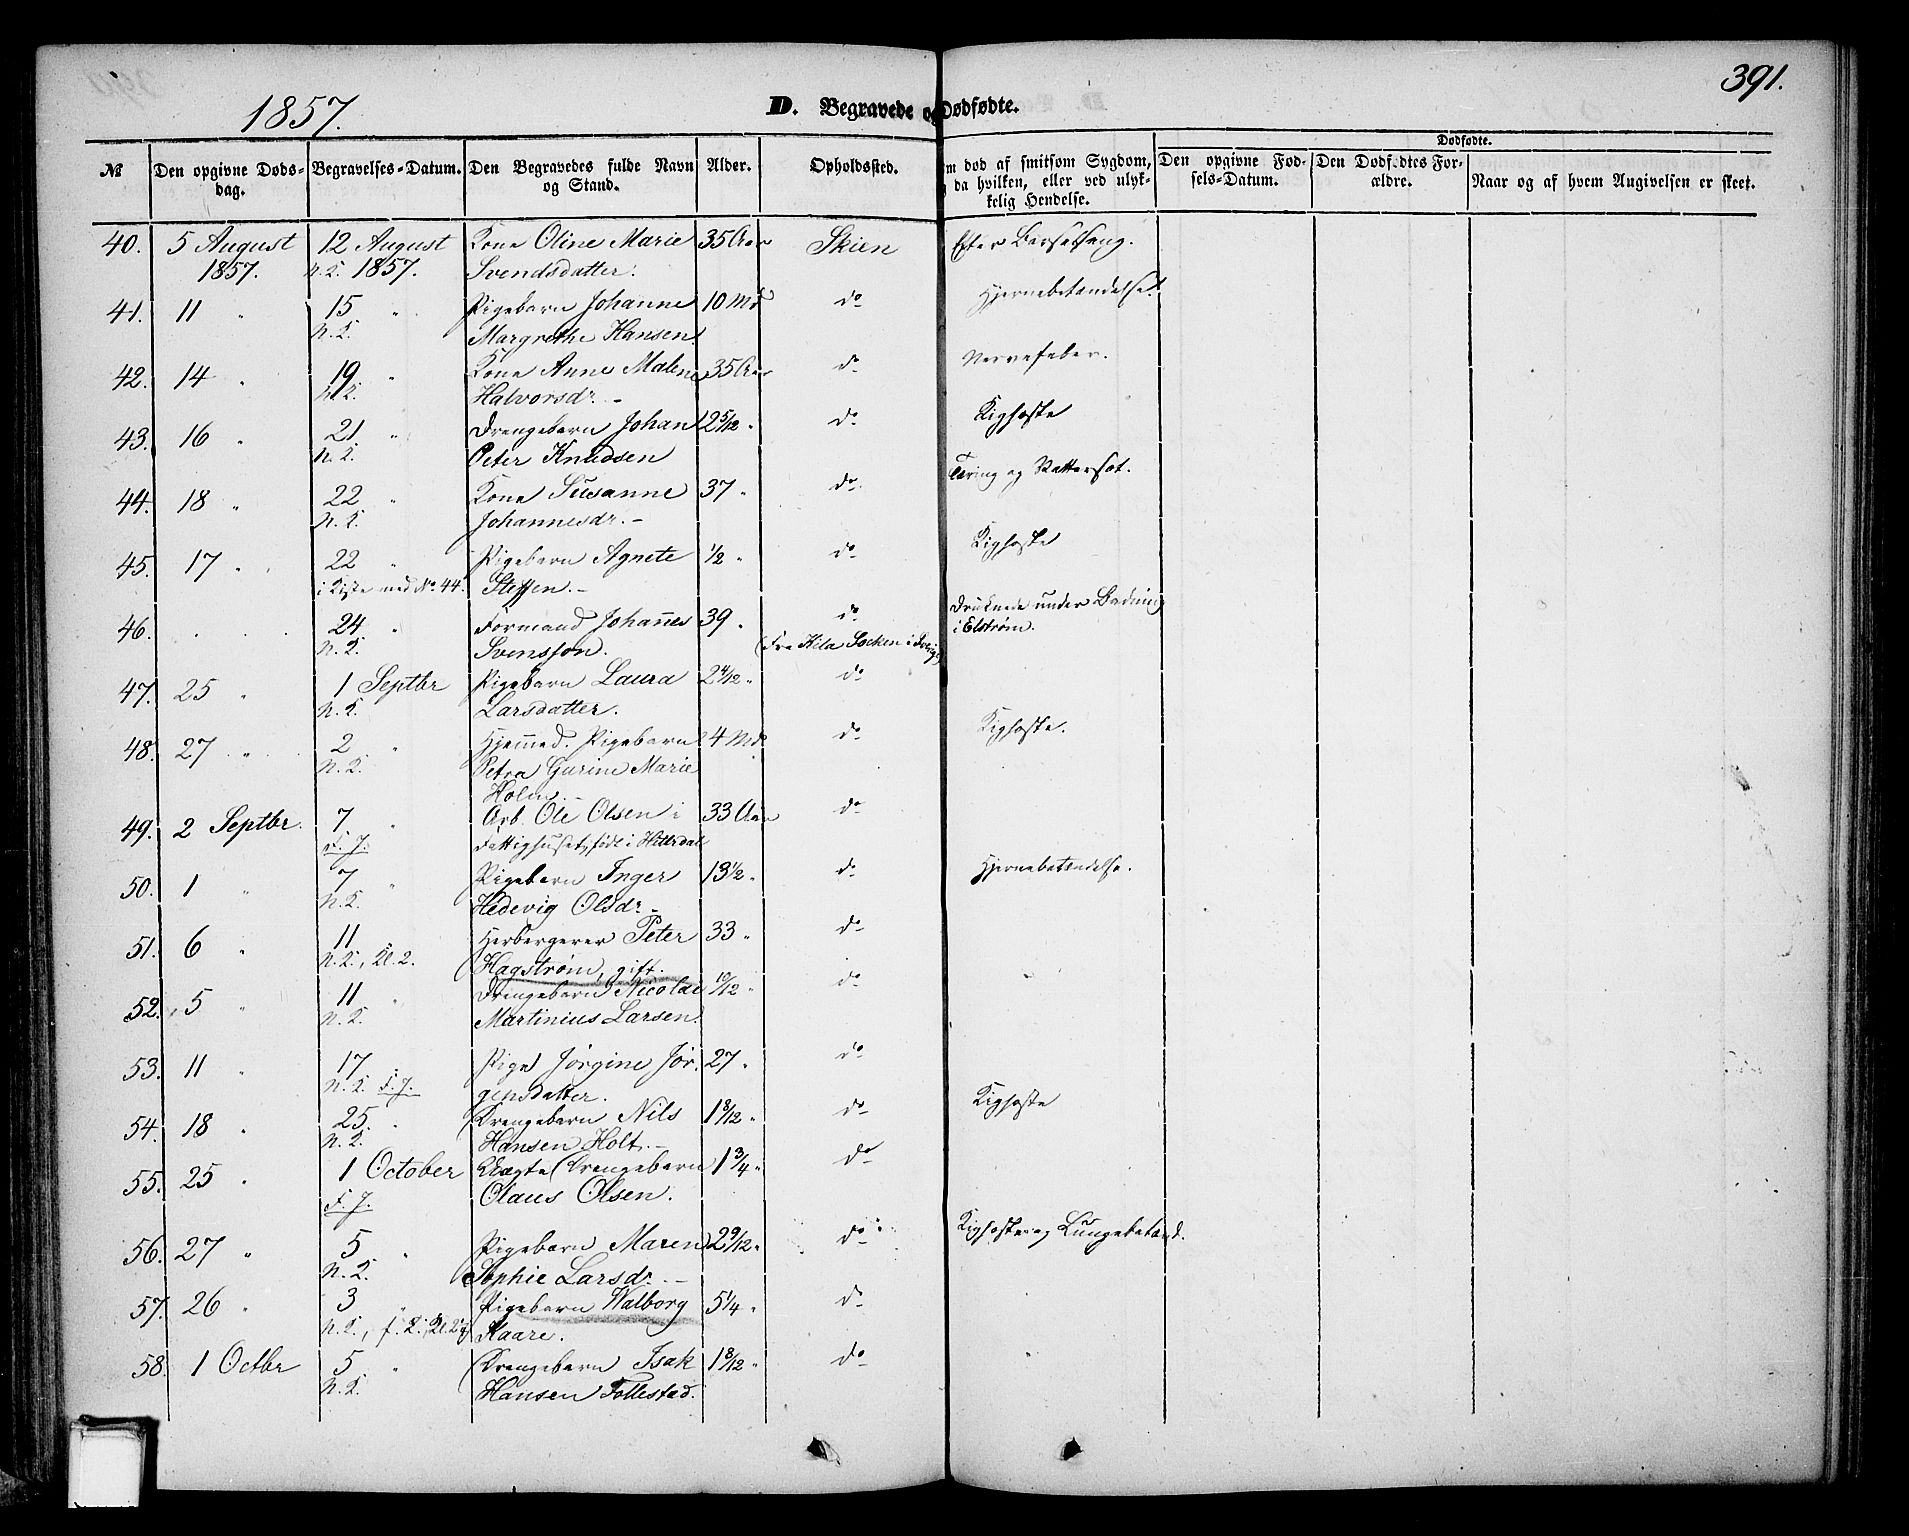 391.
1857.
D. Begravede og Dødfødte.
Dødfødte.
№ Den opgivne Døds- Begravelses-Datum. Den Begravedes fulde Navn Alder. Opholdssted. m død af smitsom Sygdom, Den opgivne Fød- Den Dødfødtes For- Naar og af hvem Angivelsen er skeet.
dag. og Stand. g da hvilken, eller ved ulyk- sels-Datum. ældre.
kelig Hendelse.
40. 5 August 12 August Kone Oline Marie 35 Aar Skien Efter Barselseng.
1857. N.K. 1857. Svendsdatter.
41. 11 " 15 " Pigebarn Johanne 10 Md do Hjernebetændelse.
N.K. Margrethe Hansen.
42. 14 " 19 " Kone Anne Malene 35 Aar do Nervefeber.
N.K. Halvorsdr. –
43. 16 " 21 " Drengebarn Johan 2 5/12 " do Kighoste
N.K. Peter Knudsen
44. 18 " 22 " Kone Susanne 37 " do Tæring og Vattersot.
N.K. Johannesdr. –
45. 17 " 22 " Pigebarn Agnete 1/2 " do Kighoste
i Kiste med No. 44. Steffen. –
46. . . . 24 " Formand Johannes 39 " do Druknede under Badning
N.K. Svensson. (Fra Kila Socken i Sverige) i Elstrøm.
47. 25 " 1 Septbr Pigebarn Laura 2 4/12 " do
N.K. Larsdatter.
48. 27 " 2 " Hjemmed. Pigebarn 4 Md. do Kighoste.
N.K. Petra Gurine Marie
Holm. –
49. 2 Septbr. 7 " Arb. Ole Olsen i 33 Aar do
F.J. Fattighuset, født i Hitterdal
50. 1 " 7 " Pigebarn Inger 13 1/2 " do Hjernebetændelse.
N.K. Hedevig Olsdr. –
51. 6 " 11 Herbergerer Peter 33 " do
N.K., Kl. 2. Hagstrøm, gift.
52. 5 " 11 " Drengebarn Nicolai 10/12 " do
N.K. Martinius Larsen.
53. 11 " 17 Pige Jørgine Jør- 27 " do
N.K. F.J. gensdatter.
54. 18 " 25. " Drengebarn Nils 1 8/12 " do Kighoste
N.K. Hansen Holt. –
55. 25 " 1 October Uægte Drengebarn 1 3/4 " do
F.J. Olaus Olsen.
56. 27 " 5 " Pigebarn Maren 2 9/12 " do Kighoste og Lungebetænd.
N.K. Sophie Larsdr. –
57. 26 " 3 " Pigebarn Walborg 5 1/4 " do
N.K., Kaare.
58. 1 Octbr 5 " Drengebarn Isak 1 8/12 " do
N.K. Hansen Follestad.